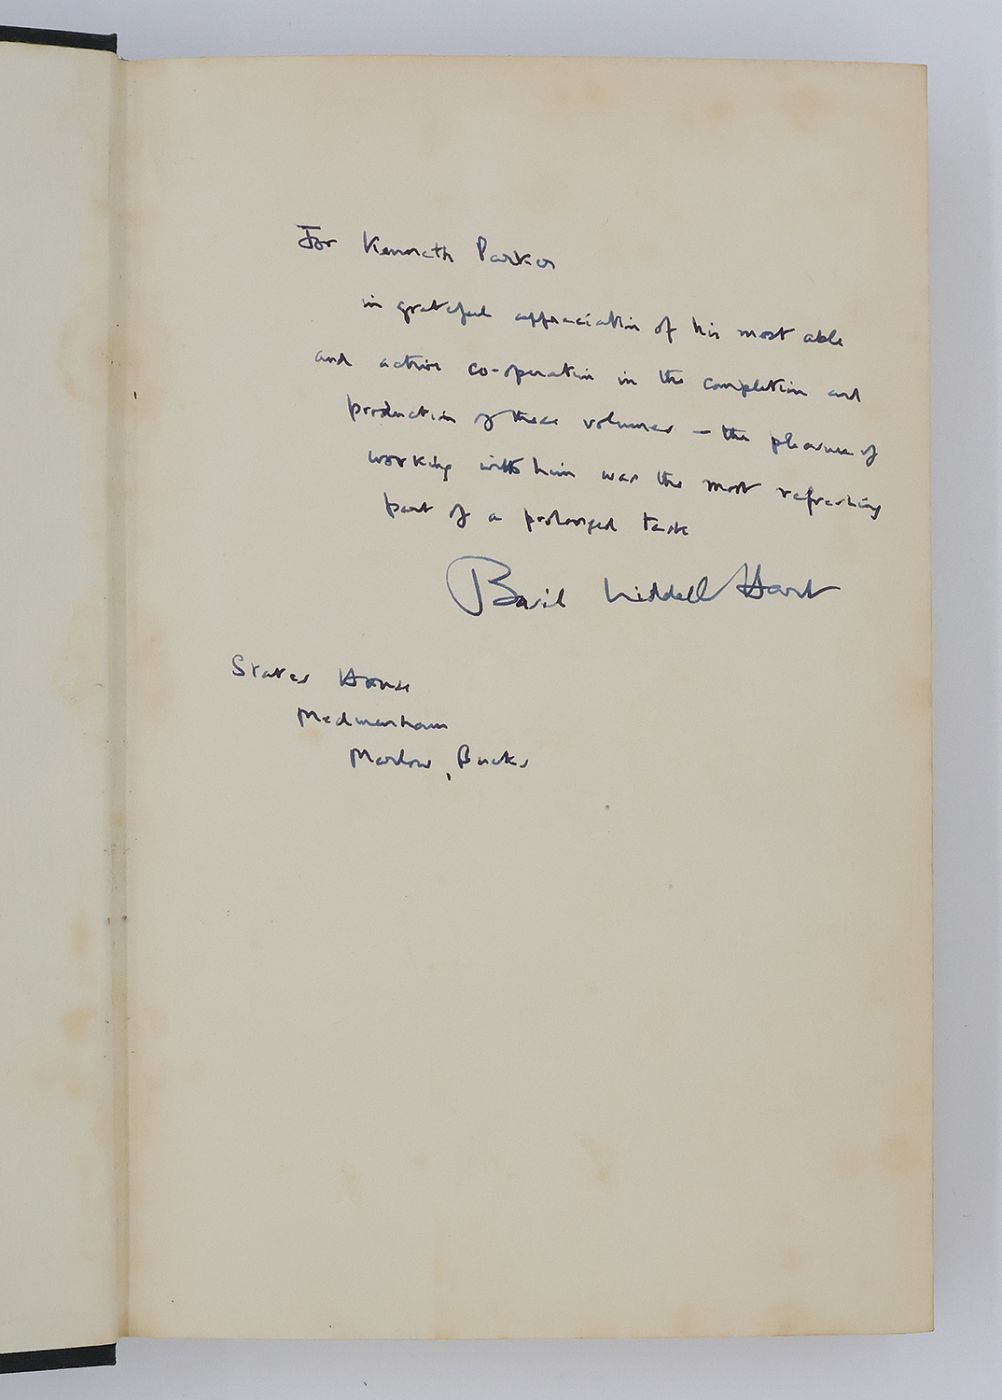 For Kenneth Parker
in grateful appreciation of his most able
and active co-operation in the completion and
production of these volumes – the pleasure of
working with him was the most refreshing
part of a prolonged task
Basil Liddell Hart
States House
Medmenham
Marlow, Bucks